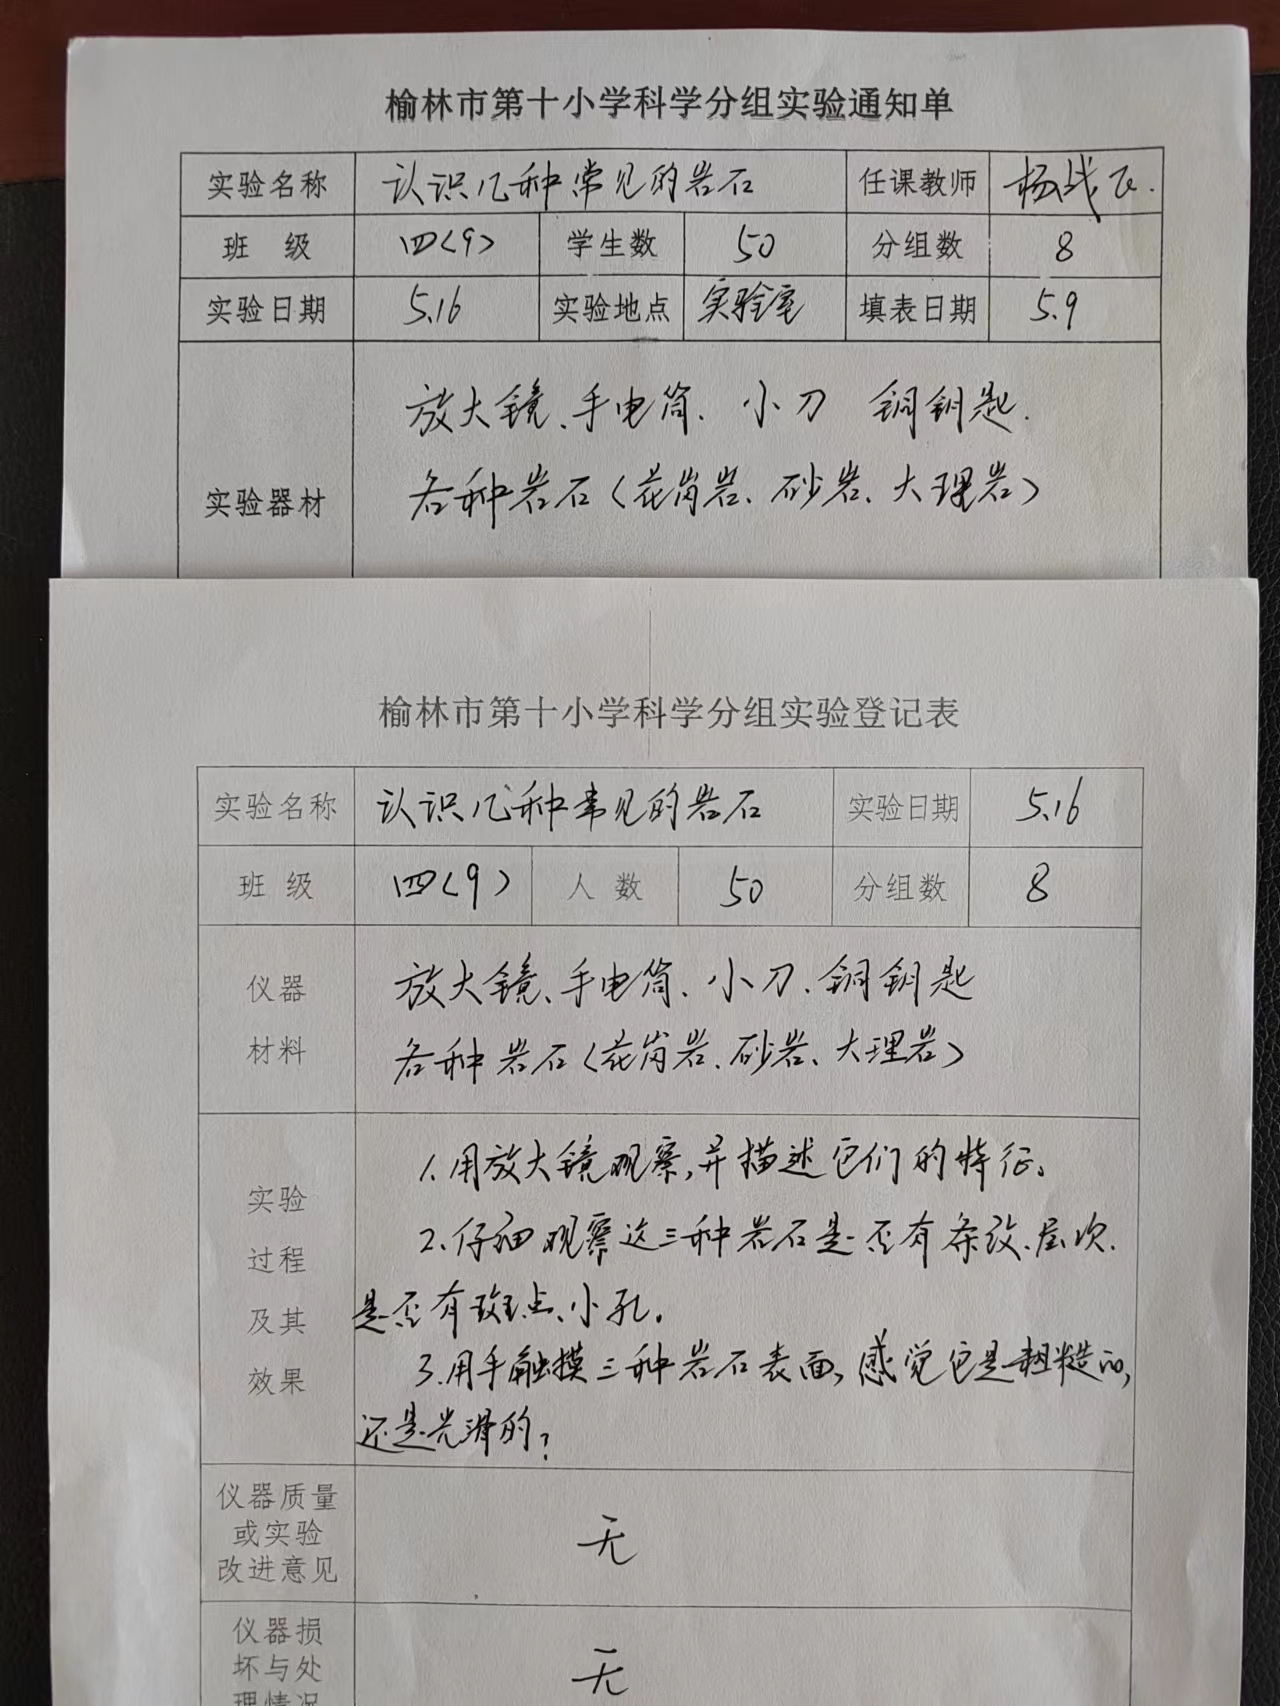 榆林市第十小学科学分组实验通知单
实验名称 认识几种常见的岩石 任课教师 杨战飞.
班 级 四<9> 学生数 50 分组数 8
实验日期 5.16 实验地点 实验室 填表日期 5.9
放大镜、手电筒. 小刀 铜钥匙.
实验器材 各种岩石(花岗岩、砂岩、大理岩)
榆林市第十小学科学分组实验登记表
实验名称 认识几种常见的岩石 实验日期 5.16
班 级 四(9) 人 数 50 分组数 8
仪器 放大镜、手电筒、小刀.铜钥匙
材料 各种岩石(花岗岩、砂岩、大理岩)
1.用放大镜观察,并描述它们的特征。
实验 2.仔细观察这三种岩石是否有条纹、层次.
过程
及其 是否有斑点、小孔。
效果 3.用手触摸三种岩石表面,感觉它是粗糙的,
还是光滑的?
仪器质量
或实验 无
改进意见
仪器损
坏与处 无
理情况